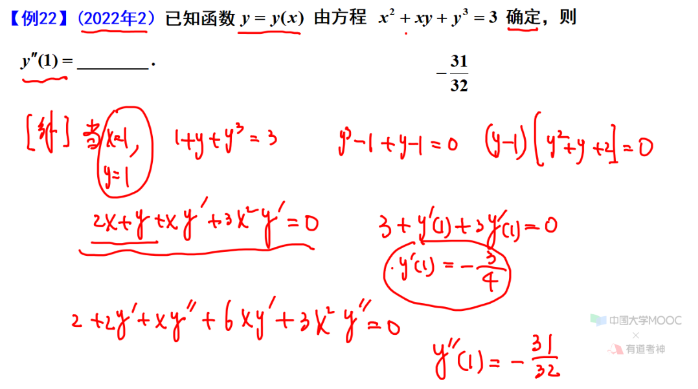 【例22】(2022年2) 已知函数 y = y(x) 由方程 x² + xy + y³ = 3 确定，则
y″(1) = ________ .
−31/32
[解] 当x=1, 1+y+y³=3 y³−1+y−1=0 (y−1)[y²+y+2]=0
y=1
2x+y+xy′+3x²y′=0 3+y′(1)+3y′(1)=0
y′(1)=−3/4
2+2y′+xy″+6xy′+3x²y″=0
y″(1)=−31/32
中国大学MOOC
×
有道考神